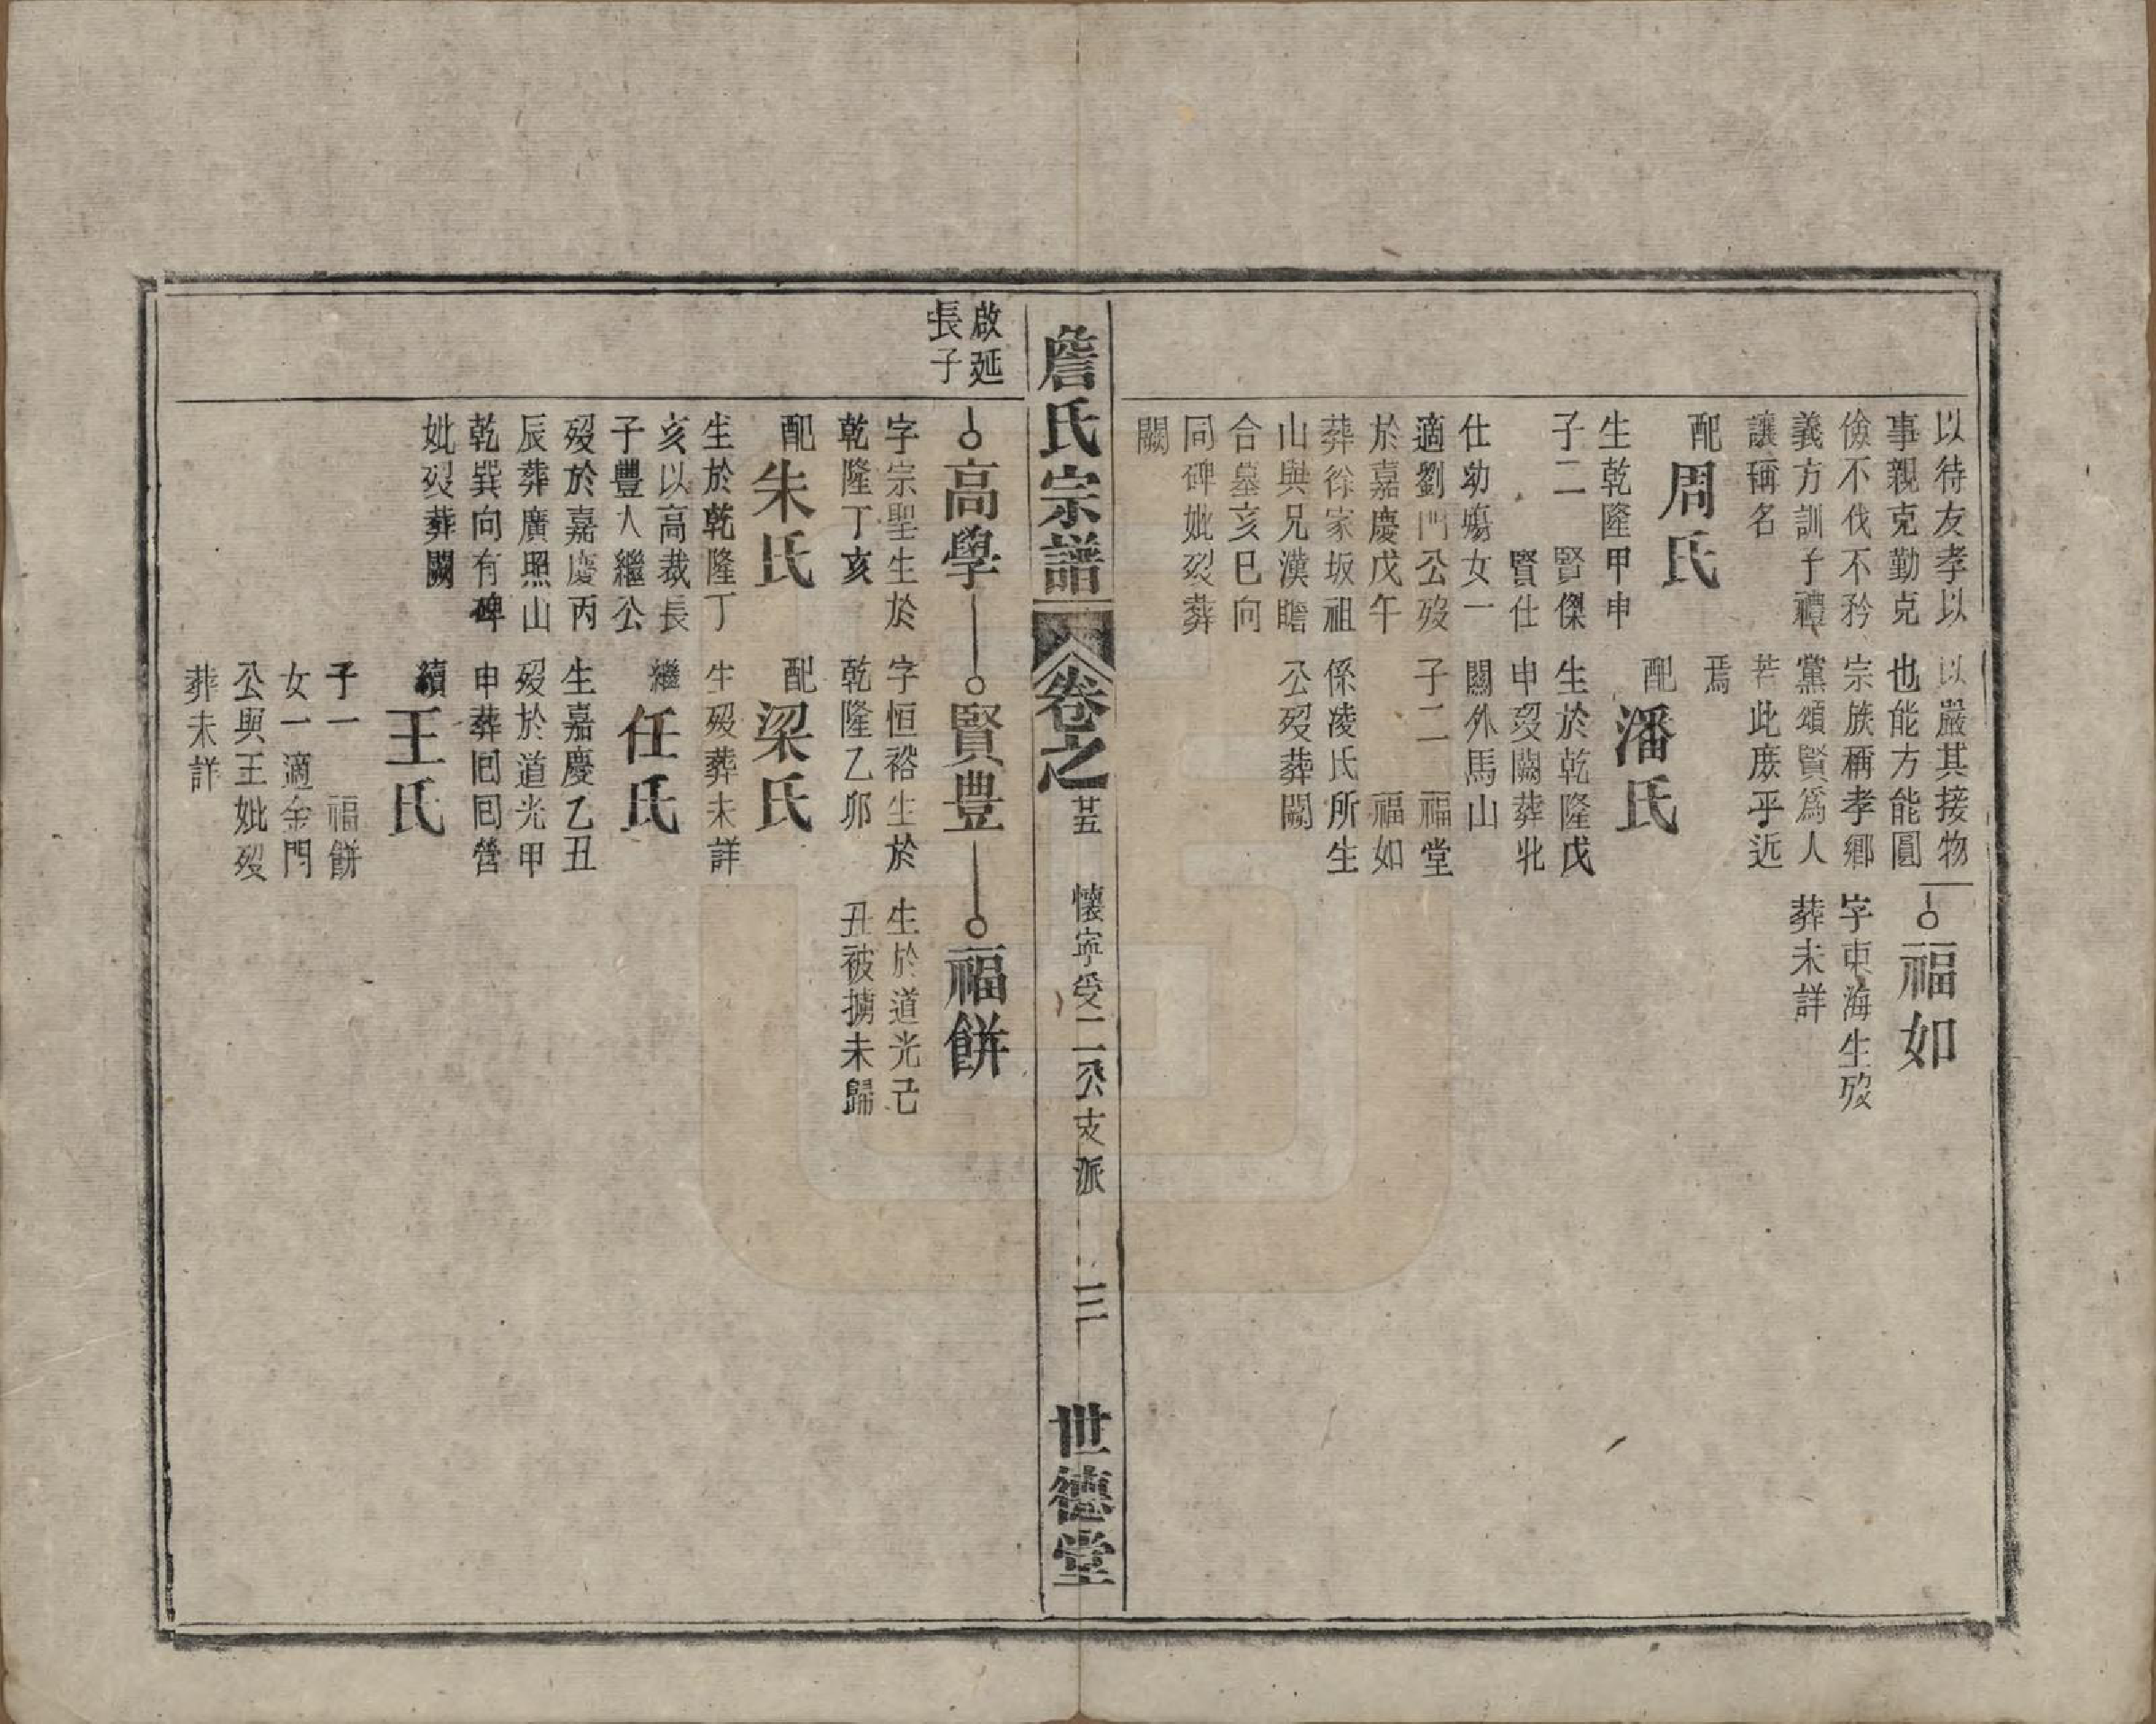 以待友孝以
事親克勤克
儉不伐不矜
義方訓子禮
讓稱名
配周氏
生乾隆甲申
子二 賢傑
賢仕
仕幼殤女一
適劉門公歿
於嘉慶戊午
葬徐家坂祖
山與兄漢瞻
合墓亥巳向
同碑妣歿葬
闕
以嚴其接物
也能方能圓
宗族稱孝鄉
黨頌賢爲人
若此庶乎近
焉
配潘氏
生於乾隆戊
申歿闕葬北
關外馬山
子二 福堂
福如
係凌氏所生
公歿葬闕
福如
字東海生歿
葬未詳
詹氏宗譜
卷之
廿五
懷寧受二公支派
三
世德堂
啟延
長子
高學
字宗聖生於
乾隆丁亥
配朱氏
生於乾隆丁
亥以高裁長
子豐人繼公
歿於嘉慶丙
辰葬廣照山
乾巽向有碑
妣歿葬闕
賢豊
字恒裕生於
乾隆乙卯
配梁氏
生歿葬未詳
繼任氏
生嘉慶乙丑
歿於道光甲
申葬回回營
續王氏
子一 福餅
女一適金門
公與王妣歿
葬未詳
福餅
生於道光己
丑被擄未歸